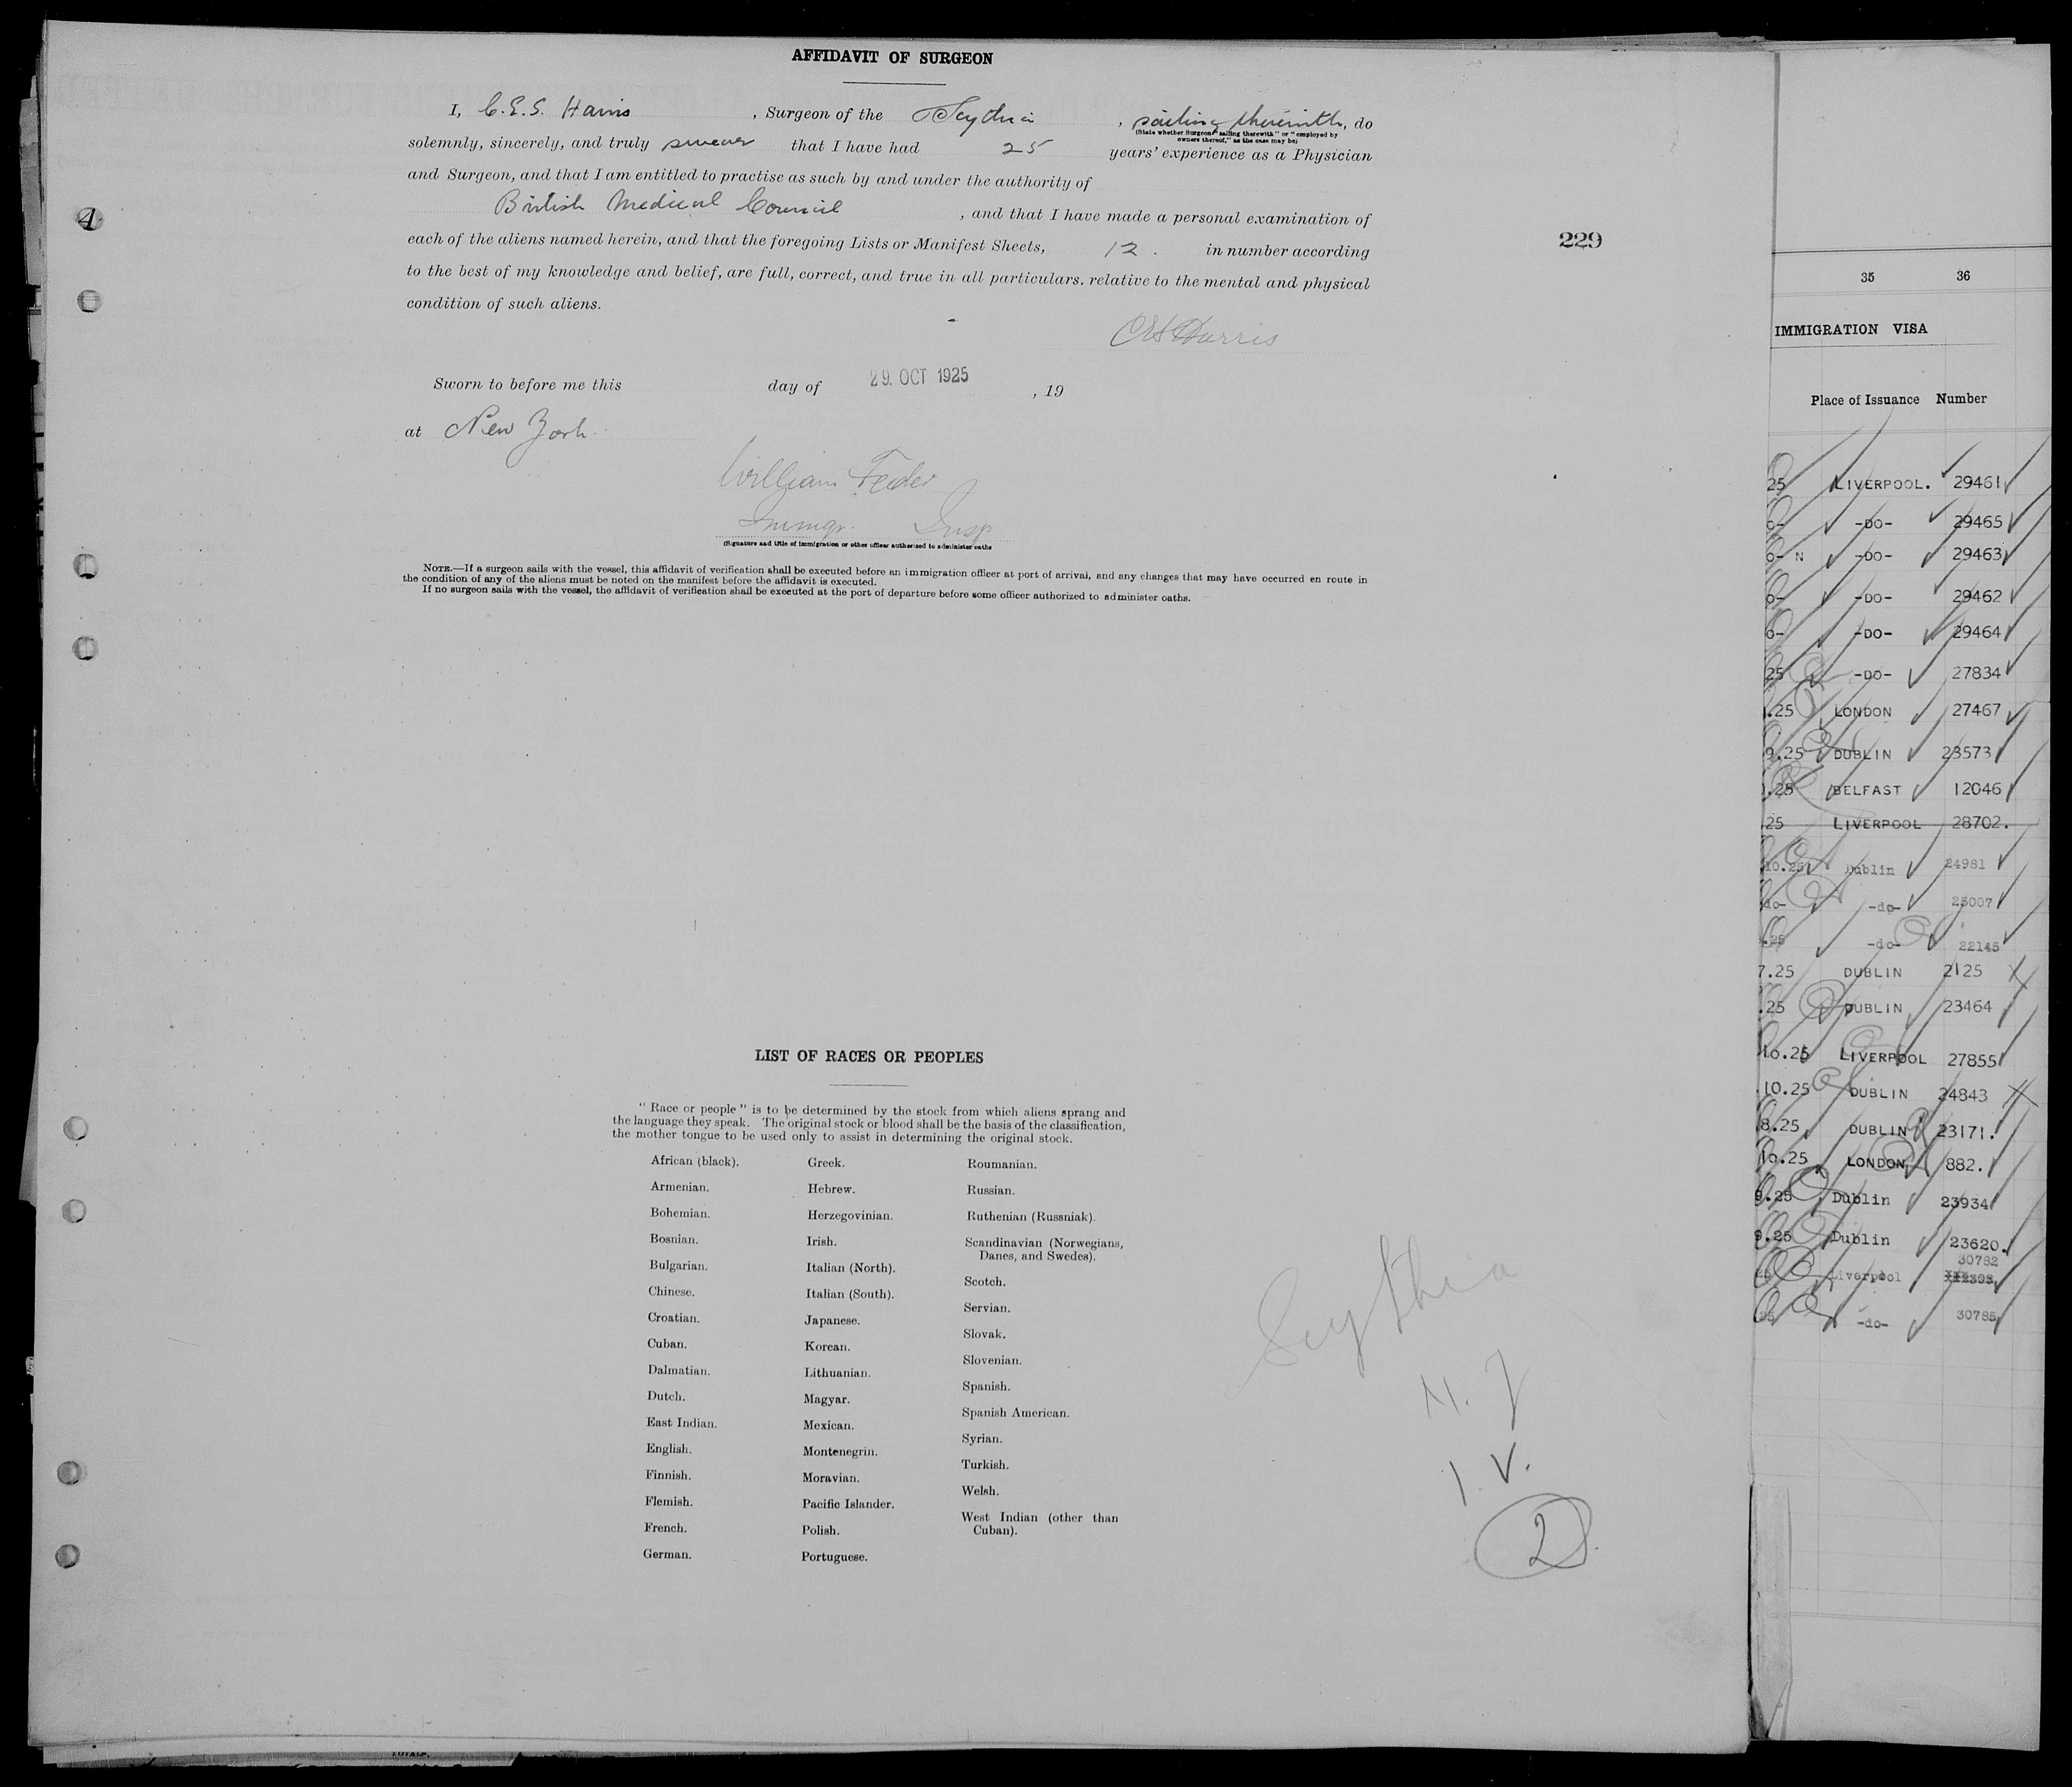 AFFIDAVIT OF SURGEON
I, C.E.S. Harris , Surgeon of the Scythia , sailing therewith, do
(State whether Surgeon "sailing therewith" or "employed by
owners thereof," as the case may be)
solemnly, sincerely, and truly swear that I have had 25 years' experience as a Physician
and Surgeon, and that I am entitled to practise as such by and under the authority of
British Medical Council , and that I have made a personal examination of
each of the aliens named herein, and that the foregoing Lists or Manifest Sheets, 12. in number according
to the best of my knowledge and belief, are full, correct, and true in all particulars. relative to the mental and physical
condition of such aliens.
Harris
Sworn to before me this day of 29. OCT 1925 , 19
at New York.
William Feder
Immgr. Insp
(Signature and title of immigration or other officer authorized to administer oaths
NOTE.—If a surgeon sails with the vessel, this affidavit of verification shall be executed before an immigration officer at port of arrival, and any changes that may have occurred en route in
the condition of any of the aliens must be noted on the manifest before the affidavit is executed.
If no surgeon sails with the vessel, the affidavit of verification shall be executed at the port of departure before some officer authorized to administer oaths.
4
229
LIST OF RACES OR PEOPLES
"Race or people" is to be determined by the stock from which aliens sprang and
the language they speak. The original stock or blood shall be the basis of the classification,
the mother tongue to be used only to assist in determining the original stock.
African (black).
Armenian.
Bohemian.
Bosnian.
Bulgarian.
Chinese.
Croatian.
Cuban.
Dalmatian.
Dutch.
East Indian.
English.
Finnish.
Flemish.
French.
German.
Greek.
Hebrew.
Herzegovinian.
Irish.
Italian (North).
Italian (South).
Japanese.
Korean.
Lithuanian.
Magyar.
Mexican.
Montenegrin.
Moravian.
Pacific Islander.
Polish.
Portuguese.
Roumanian.
Russian.
Ruthenian (Russniak).
Scandinavian (Norwegians,
Danes, and Swedes).
Scotch.
Servian.
Slovak.
Slovenian.
Spanish.
Spanish American.
Syrian.
Turkish.
Welsh.
West Indian (other than
Cuban).
Scythia
1. V.
2
35 36
IMMIGRATION VISA
Place of Issuance Number
25 LIVERPOOL. 29461
o- -DO- 29465
o- N -DO- 29463
o- -DO- 29462
o- -DO- 29464
25 -DO- 27834
.25 LONDON 27467
9.25 DUBLIN 23573
.25 BELFAST 12046
25 LIVERPOOL 28702.
10.25 Dublin 24981
do- -do- 25007
.25 -do- 22145
7.25 DUBLIN 2125
.25 DUBLIN 23464
10.25 LIVERPOOL 27855
.10.25 DUBLIN 24843
8.25 DUBLIN 23171.
10.25 LONDON 882.
9.25 Dublin 23934
9.25 Dublin 23620.
25 Liverpool 30782
25 -do- 30785